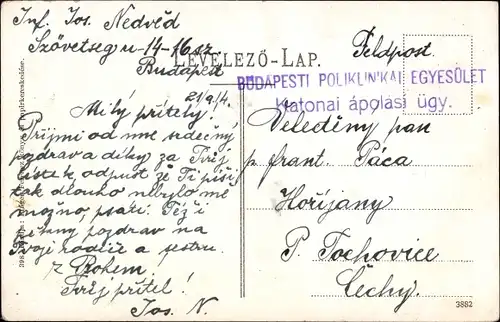 Inf. Jos. Nedvěd
Szövetseg u-14-16 sz.
Budapest
LEVELEZŐ-LAP.
Feldpost.
BUDAPESTI POLIKLINIKAI EGYESÜLET
Katonai ápolási ügy.
21/9/4.
Milý příteli!
Přijmi od mne srdečný
pozdrav a díky za Tvůj
lístek, odpust že Ti píši
tak dlouho nebylo mě
možno psáti. Též i
pozdrav na
Tvoje rodiče a sestru.
z Bohem
Tvůj přítel!
Jos. N.
Velectěný pan
p frant. Páca
Hoříjany
P. Tochovice
Čechy.
3882